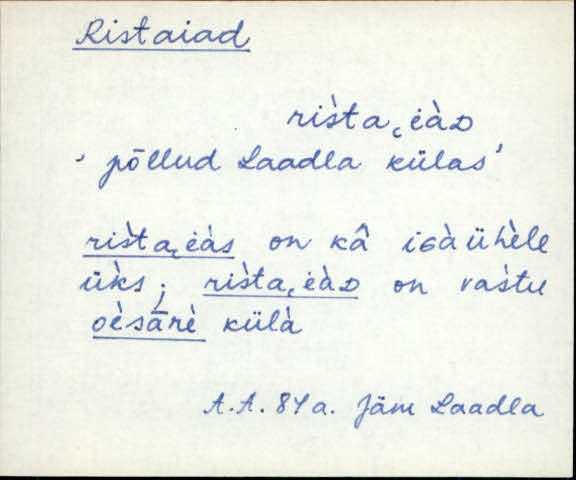 Ristaiad
rìsta˛èàᴅ
' põllud Laadla külas'
rìsta˛èàs on kâ iɢàühèle
ùks; rìsta˛èàᴅ on vastu
oèsārè külà
A.A. 84 a. Jäm Laadla